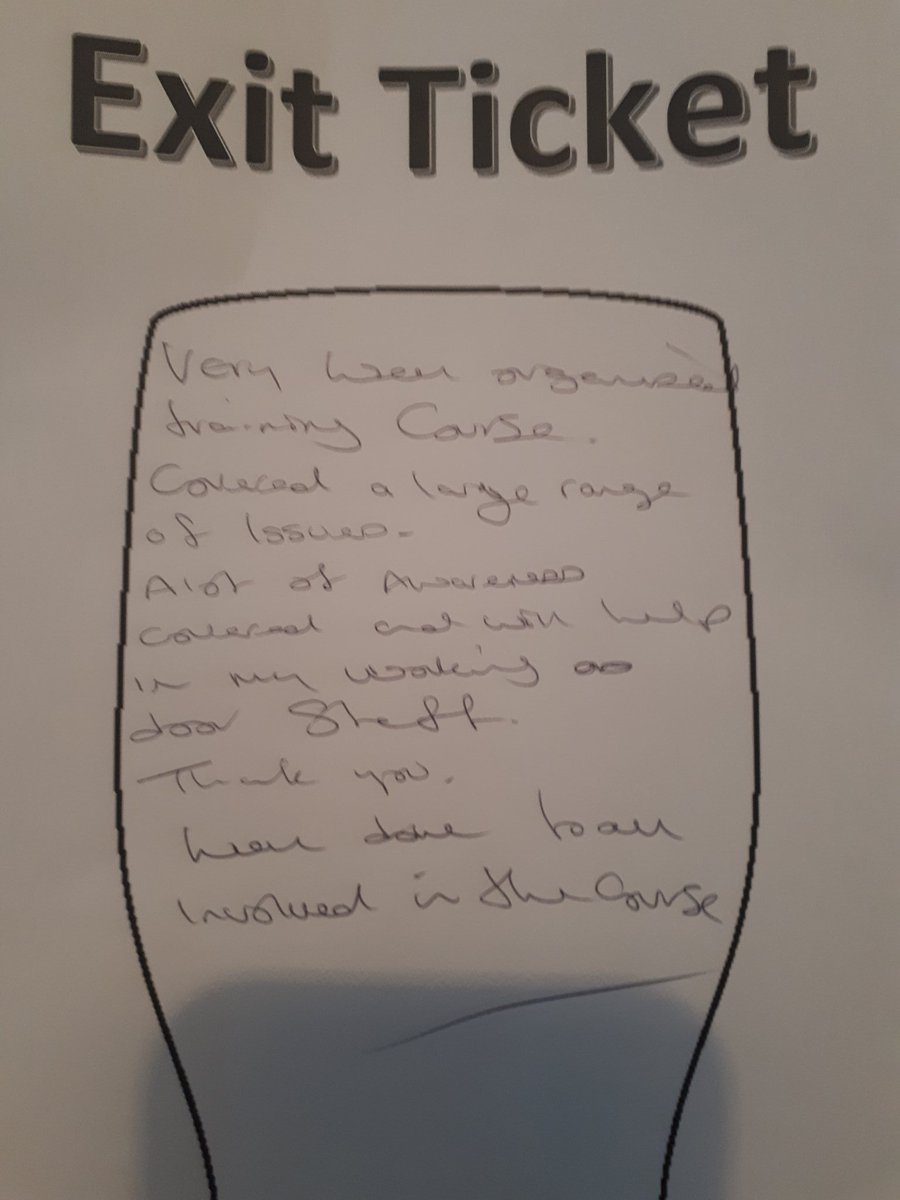 Exit Ticket
Very well organised
training Course.
Covered a large range
of Issues.
Alot of Awareness
covered and will help
in my working as
door Staff.
Thank you.
Well done to all
Involved in the Course